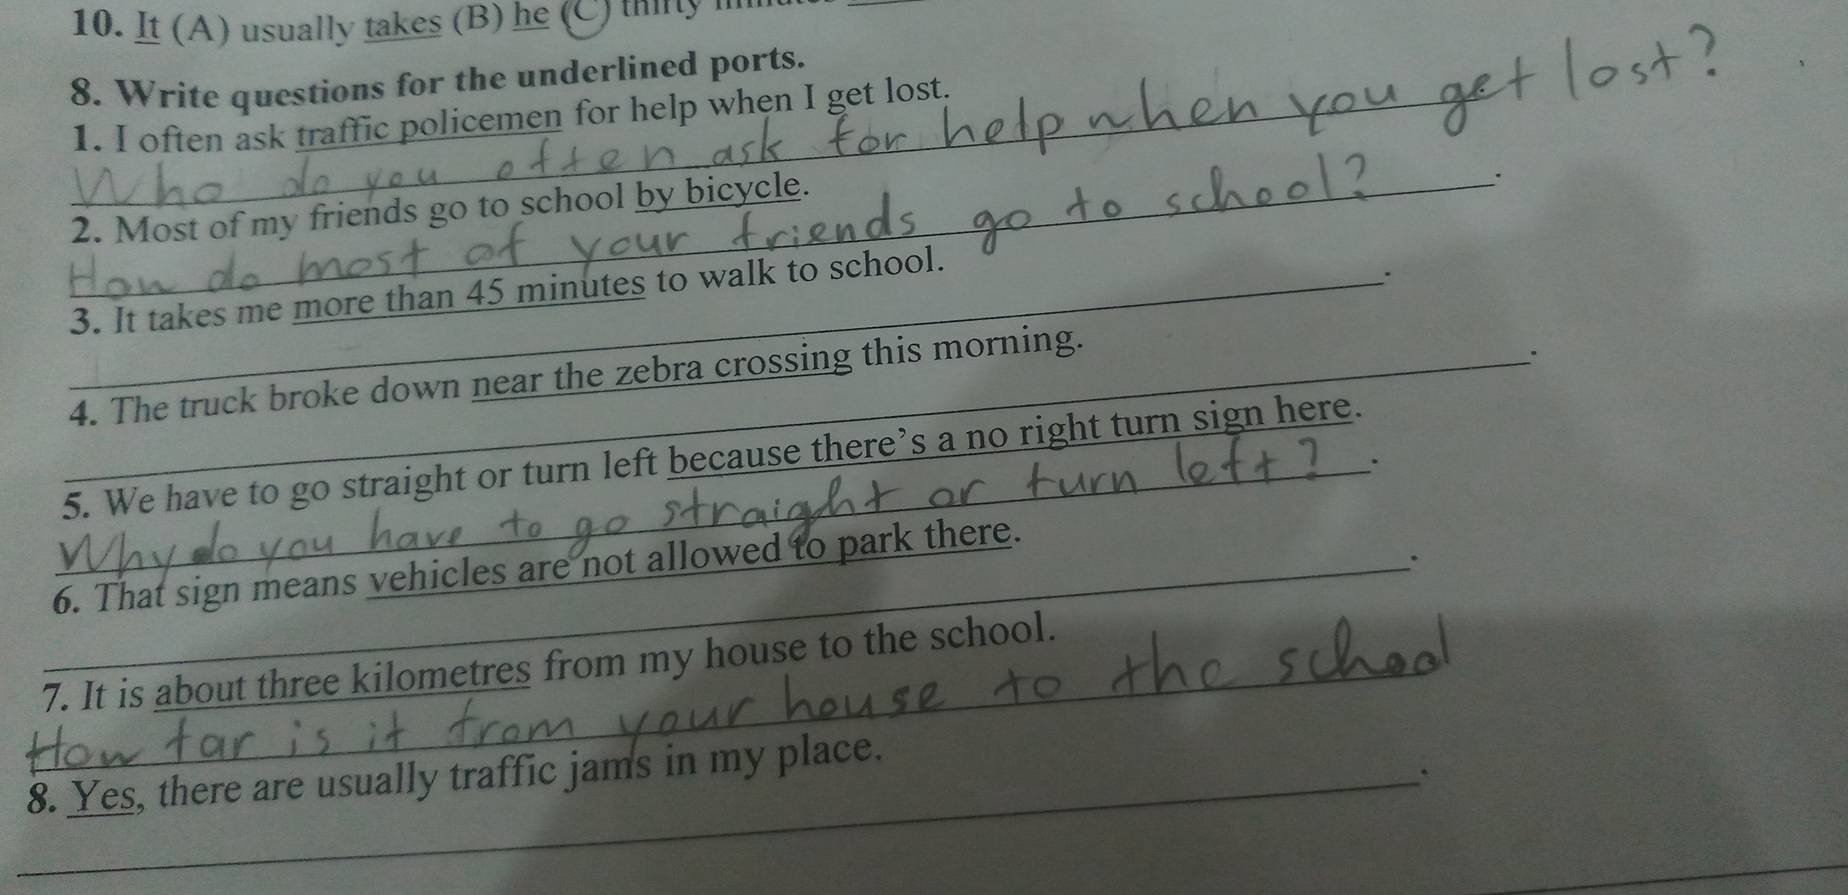 10. It (A) usually takes (B) he (C) thirty
8. Write questions for the underlined ports.
1. I often ask traffic policemen for help when I get lost.
Who do you often ask for help when you get lost?
2. Most of my friends go to school by bicycle.
How do most of your friends go to school?
3. It takes me more than 45 minutes to walk to school.
4. The truck broke down near the zebra crossing this morning.
5. We have to go straight or turn left because there's a no right turn sign here.
Why do you have to go straight or turn left?
6. That sign means vehicles are not allowed to park there.
7. It is about three kilometres from my house to the school.
How far is it from your house to the school
8. Yes, there are usually traffic jams in my place.